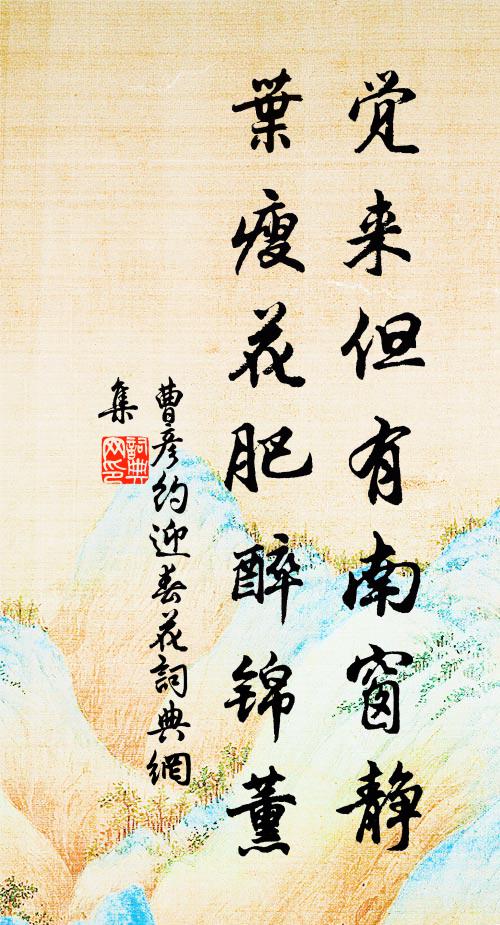 觉来但有南窗静
葉瘦花肥醉锦薰
曹彦约迎春花詞典網
集
詞典
网印